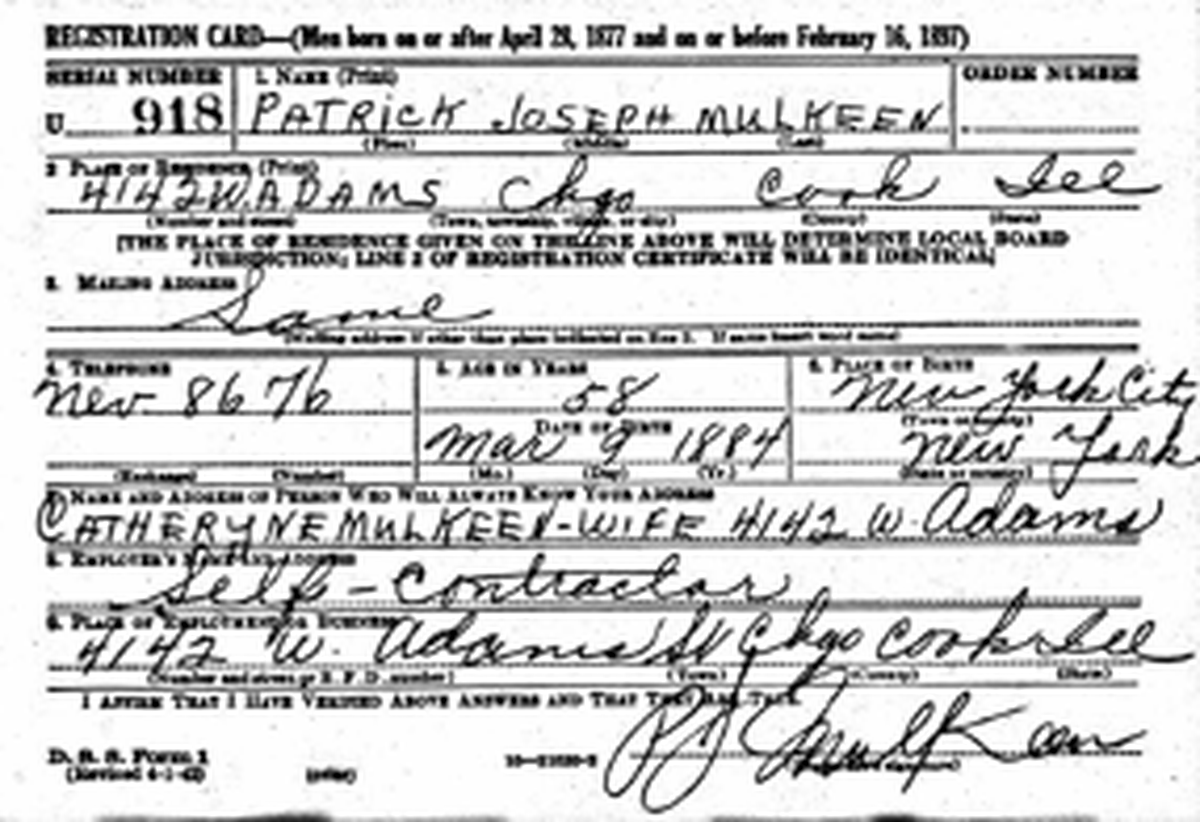 REGISTRATION CARD—(Men born on or after April 28, 1877 and on or before February 16, 1897)
SERIAL NUMBER 1. NAME (Print) ORDER NUMBER
U 918 PATRICK JOSEPH MULKEEN
(First) (Middle) (Last)
2. PLACE OF RESIDENCE (Print)
4142 W. ADAMS Chgo Cook Ill
(Number and street) (Town, township, village, or city) (County) (State)
[THE PLACE OF RESIDENCE GIVEN ON THE LINE ABOVE WILL DETERMINE LOCAL BOARD
JURISDICTION; LINE 2 OF REGISTRATION CERTIFICATE WILL BE IDENTICAL]
3. MAILING ADDRESS
Same
(Mailing address if other than place indicated on line 2. If same insert word same)
4. TELEPHONE 5. AGE IN YEARS 6. PLACE OF BIRTH
Nev. 8676 58 New York City
DATE OF BIRTH (Town or county)
Mar 9 1884 New York
(Exchange) (Number) (Mo.) (Day) (Yr.) (State or country)
7. NAME AND ADDRESS OF PERSON WHO WILL ALWAYS KNOW YOUR ADDRESS
CATHERYNE MULKEEN-WIFE 4142 W. Adams
8. EMPLOYER'S NAME AND ADDRESS
Self - Contractor
9. PLACE OF EMPLOYMENT OR BUSINESS
4142 W. Adams St Chgo Cook Ill
(Number and street or R. F. D. number) (Town) (County) (State)
I AFFIRM THAT I HAVE VERIFIED ABOVE ANSWERS AND THAT THEY ARE TRUE.
PJ Mulkeen
D. S. S. Form 1
(Revised 4-1-42) (over)